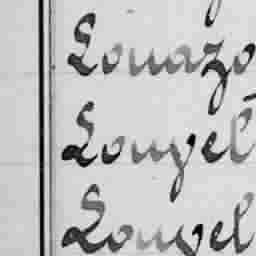 Louazo
Louvel
Louvel